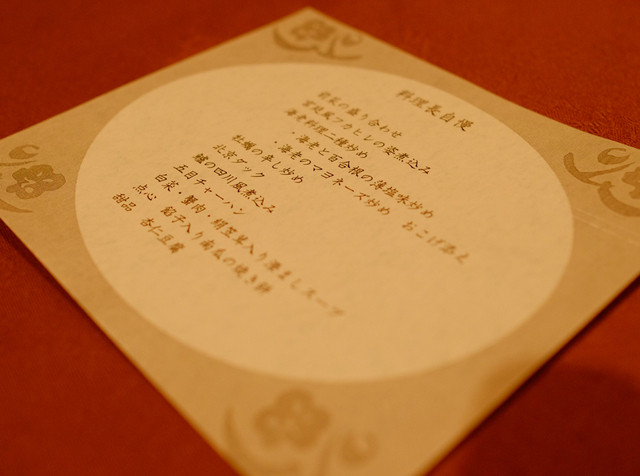 料理長自慢
前菜の盛り合わせ
宮廷風フカヒレの姿煮込み
海老料理二種炒め
・海老と百合根の薄塩味炒め
・海老のマヨネーズ炒め おこげ添え
牡蠣の辛し炒め
北京ダック
鱸の四川風煮込み
五目チャーハン
白菜・蟹肉・絹笠茸入り澄ましスープ
点心 餡子入り南瓜の焼き餅
甜品 杏仁豆腐